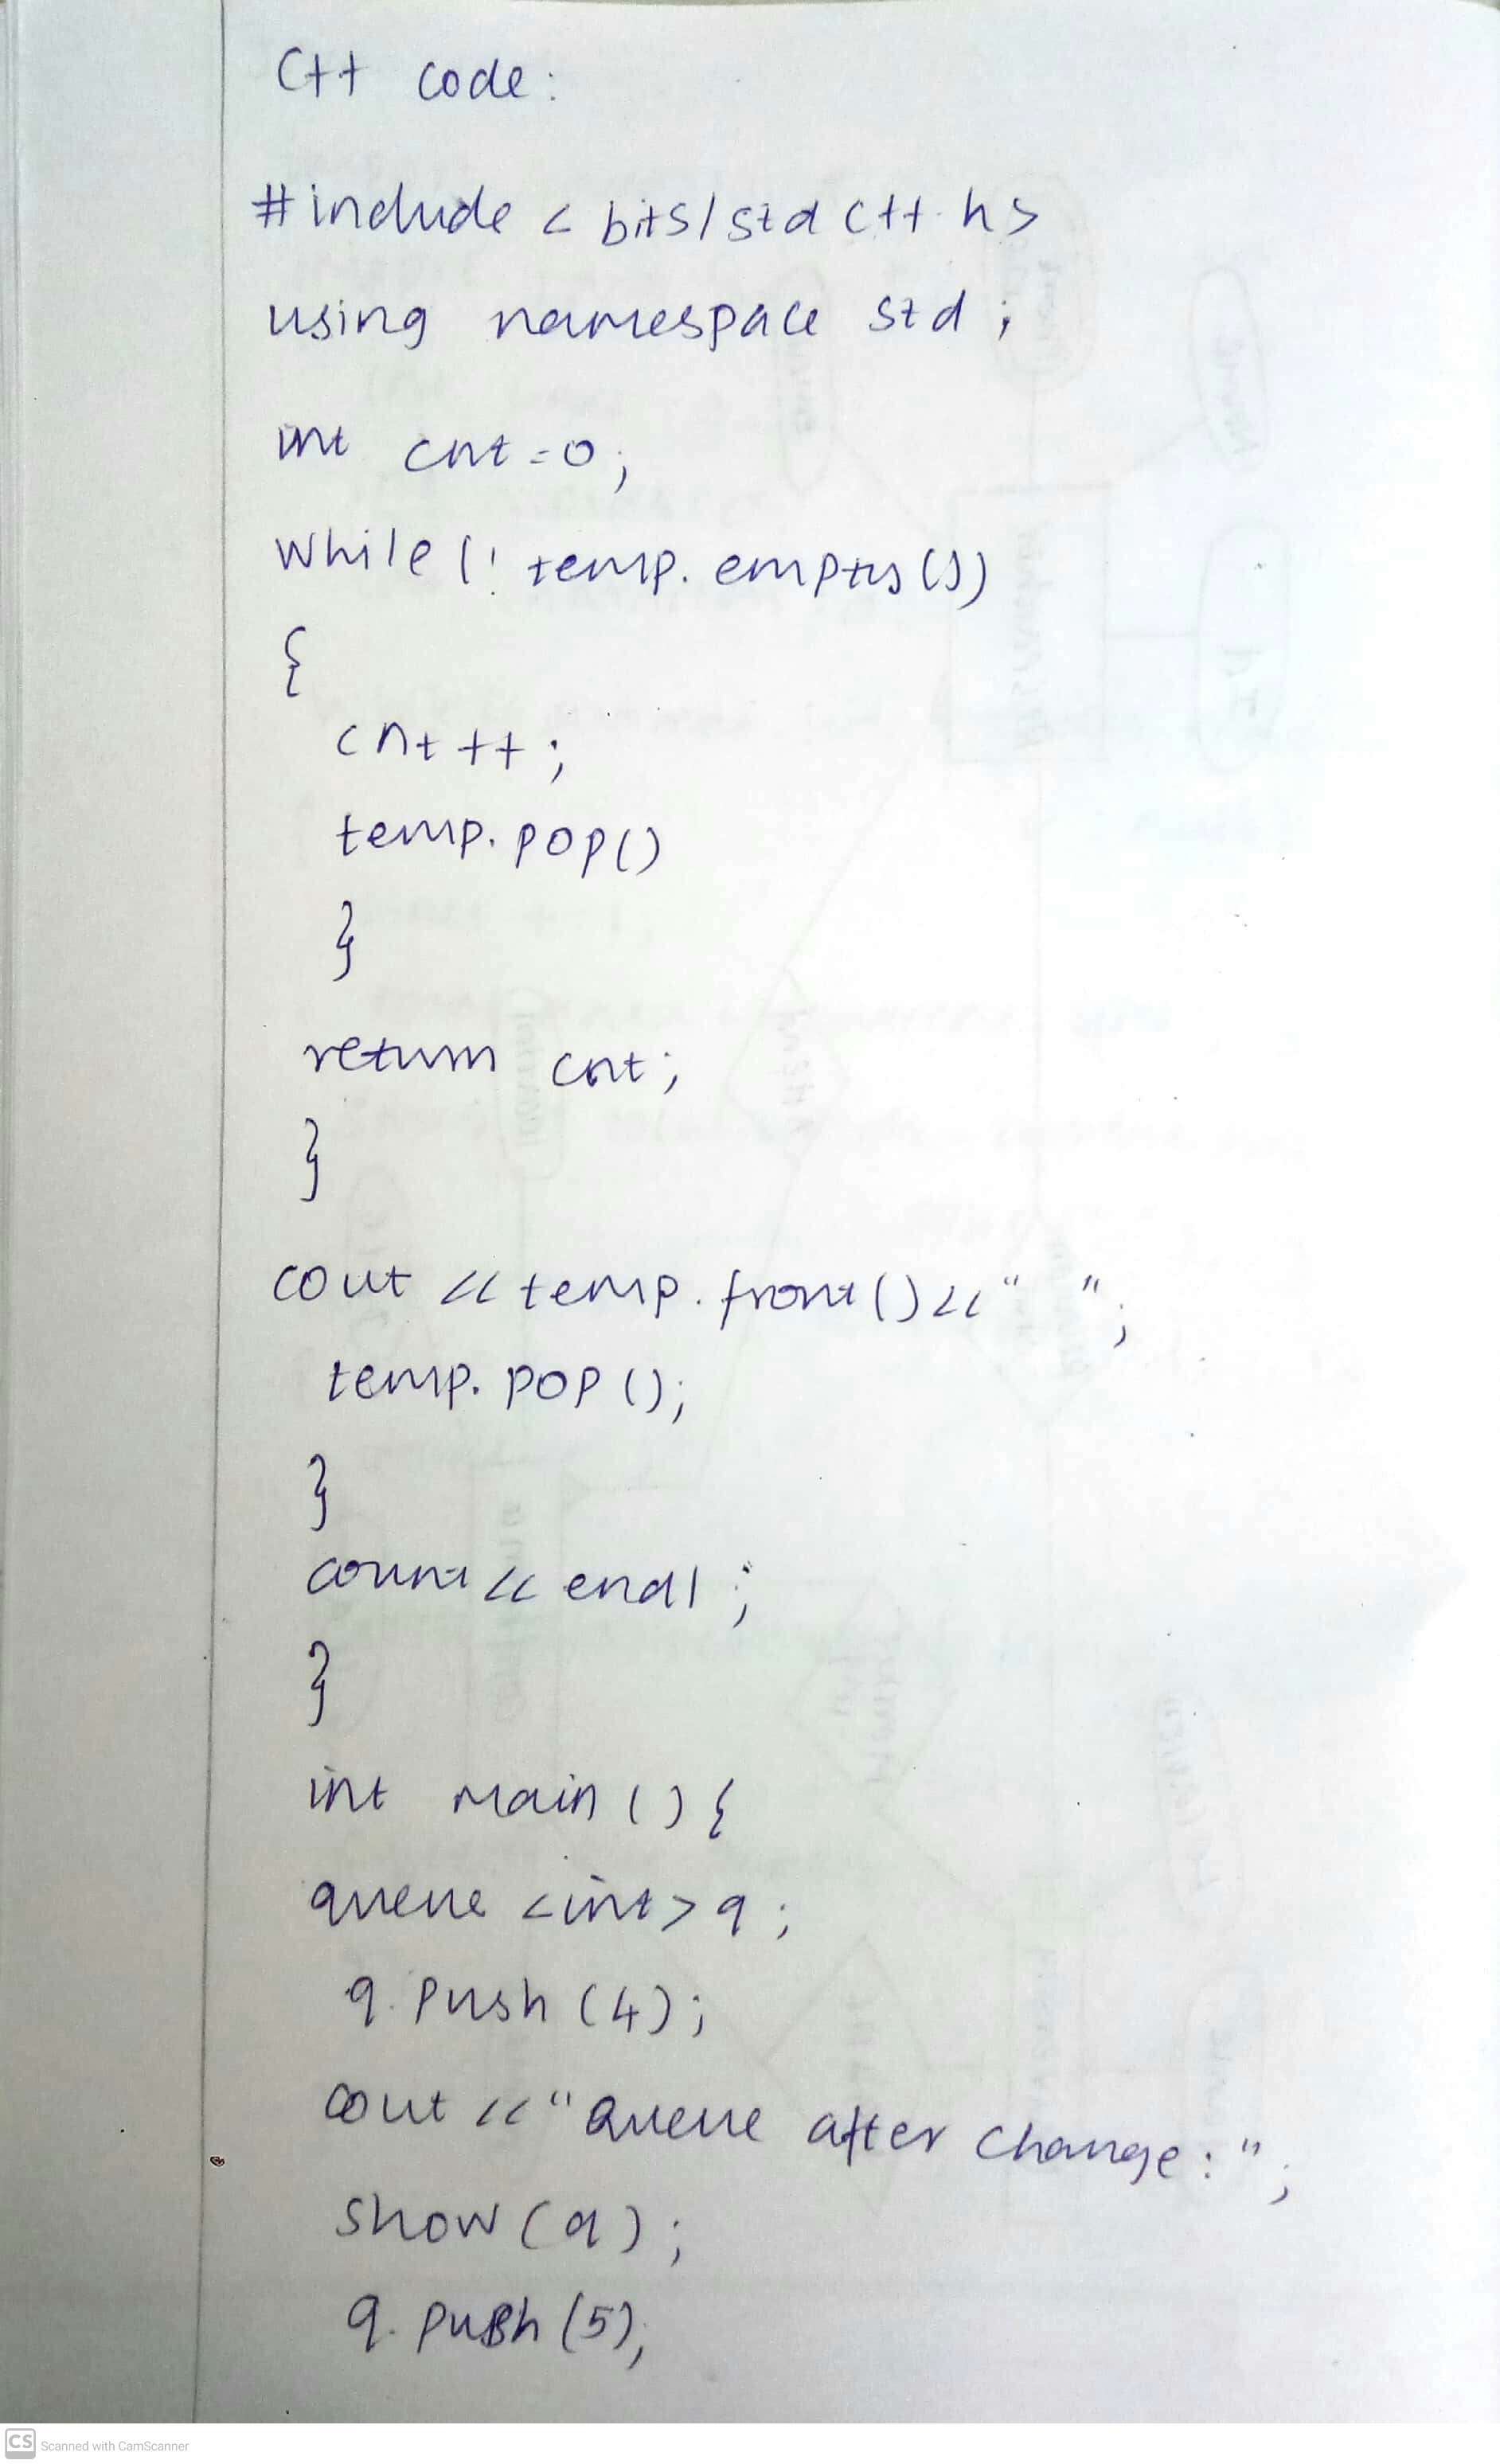 C++ code:
#include < bits/std c++.h>
using namespace std;
int cnt=0;
while(! temp. empty())
{
cnt ++;
temp. pop()
}
return cnt;
}
cout << temp. front()<<" ";
temp. pop();
}
count << endl;
}
int main () {
queue <int> q;
q. push (4);
cout <<" Queue after change:";
show (q);
q. push (5);
CS Scanned with CamScanner